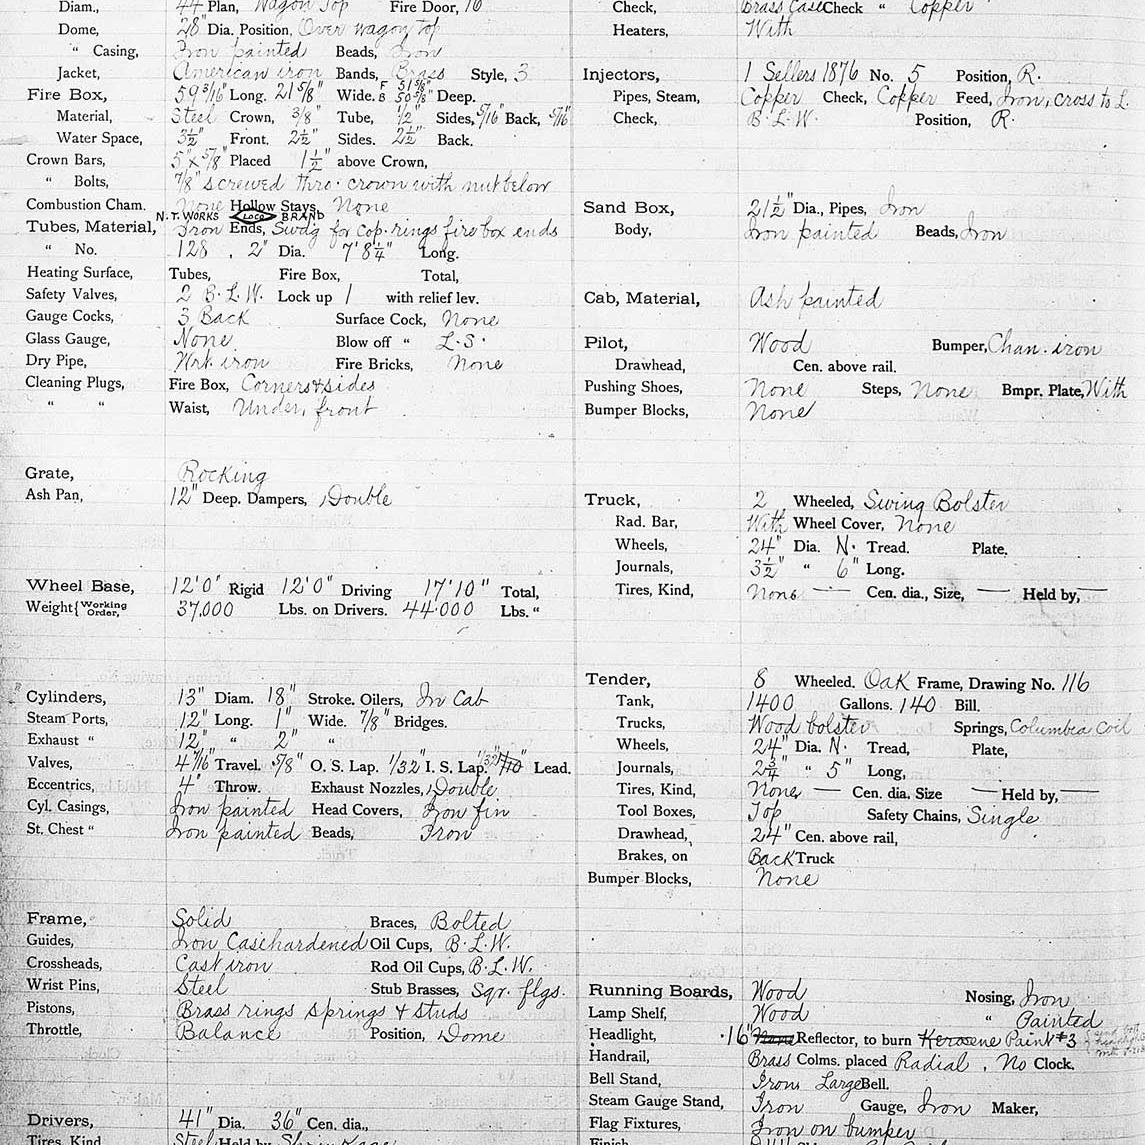 Diam., 44" Plan, Wagon Top Fire Door, 16
Dome, 28" Dia. Position, Over wagon top
" Casing, Iron painted Beads, Iron
Jacket, American iron Bands, Brass Style, 3
Fire Box, 59 3/16" Long. 21 5/8" Wide. F 51 5/8" B 50 5/8" Deep.
Material, Steel Crown, 3/8" Tube, 1/2" Sides, 5/16" Back, 5/16"
Water Space, 3 1/2" Front. 2 1/2" Sides. 2 1/2" Back.
Crown Bars, 5" x 5/8" Placed 1 1/2" above Crown,
" Bolts, 7/8" screwed thro. crown with nut below
Combustion Cham. None Hollow Stays, None
N.T. WORKS LOCO BRAND
Tubes, Material, Iron Ends, Swd'g for cop. rings fire box ends
" No. 128 . 2" Dia. 7' 8 1/4" Long.
Heating Surface, Tubes, Fire Box, Total,
Safety Valves, 2 B.L.W. Lock up 1 with relief lev.
Gauge Cocks, 3 Back Surface Cock, None
Glass Gauge, None Blow off " L.S.
Dry Pipe, Wrt. iron Fire Bricks, None
Cleaning Plugs, Fire Box, Corners & sides
" " Waist, Under, front
Grate, Rocking
Ash Pan, 12" Deep. Dampers, Double
Wheel Base, 12' 0" Rigid 12' 0" Driving 17' 10" Total,
Weight { Working Order, 37,000 Lbs. on Drivers. 44,000 Lbs. "
Cylinders, 13" Diam. 18" Stroke. Oilers, In Cab
Steam Ports, 12" Long. 1" Wide. 7/8" Bridges.
Exhaust " 12" " 2" "
Valves, 4 7/16" Travel. 5/8" O. S. Lap. 1/32" I. S. Lap. 1/32" Lead.
Eccentrics, 4" Throw. Exhaust Nozzles, Double
Cyl. Casings, Iron painted Head Covers, Iron fin
St. Chest " Iron painted Beads, Iron
Frame, Solid Braces, Bolted
Guides, Iron Casehardened Oil Cups, B.L.W.
Crossheads, Cast iron Rod Oil Cups, B.L.W.
Wrist Pins, Steel Stub Brasses, Sqr. flgs.
Pistons, Brass rings springs & studs
Throttle, Balance Position, Dome
Drivers, 41" Dia. 36" Cen. dia.,
Tires, Kind Steel Held by Shrinkage
Check, Brass Case Check " Copper
Heaters, With
Injectors, 1 Sellers 1876 No. 5 Position, R.
Pipes, Steam, Copper Check, Copper Feed, Iron, cross to L.
Check, B.L.W. Position, R.
Sand Box, 21 1/2" Dia., Pipes, Iron
Body, Iron painted Beads, Iron
Cab, Material, Ash painted
Pilot, Wood Bumper, Chan. iron
Drawhead, Cen. above rail.
Pushing Shoes, None Steps, None Bmpr. Plate, With
Bumper Blocks, None
Truck, 2 Wheeled, Swing Bolster
Rad. Bar, With Wheel Cover, None
Wheels, 24" Dia. N. Tread. Plate.
Journals, 3 1/2" " 6" Long.
Tires, Kind, None — Cen. dia., Size, — Held by, —
Tender, 8 Wheeled. Oak Frame, Drawing No. 116
Tank, 1400 Gallons. 140 Bill.
Trucks, Wood bolster Springs, Columbia Coil
Wheels, 24" Dia. N. Tread, Plate,
Journals, 2 3/4" " 5" Long,
Tires, Kind, None, — Cen. dia. Size — Held by, —
Tool Boxes, Top Safety Chains, Single
Drawhead, 24" Cen. above rail,
Brakes, on Back Truck
Bumper Blocks, None
Running Boards, Wood Nosing, Iron
Lamp Shelf, Wood " Painted
Headlight, 16" None Reflector, to burn Kerosene Paint #3
Handrail, Brass Colms. placed Radial . No Clock.
Bell Stand, Iron Large Bell.
Steam Gauge Stand, Iron Gauge, Iron Maker,
Flag Fixtures, Iron on bumper
Finish